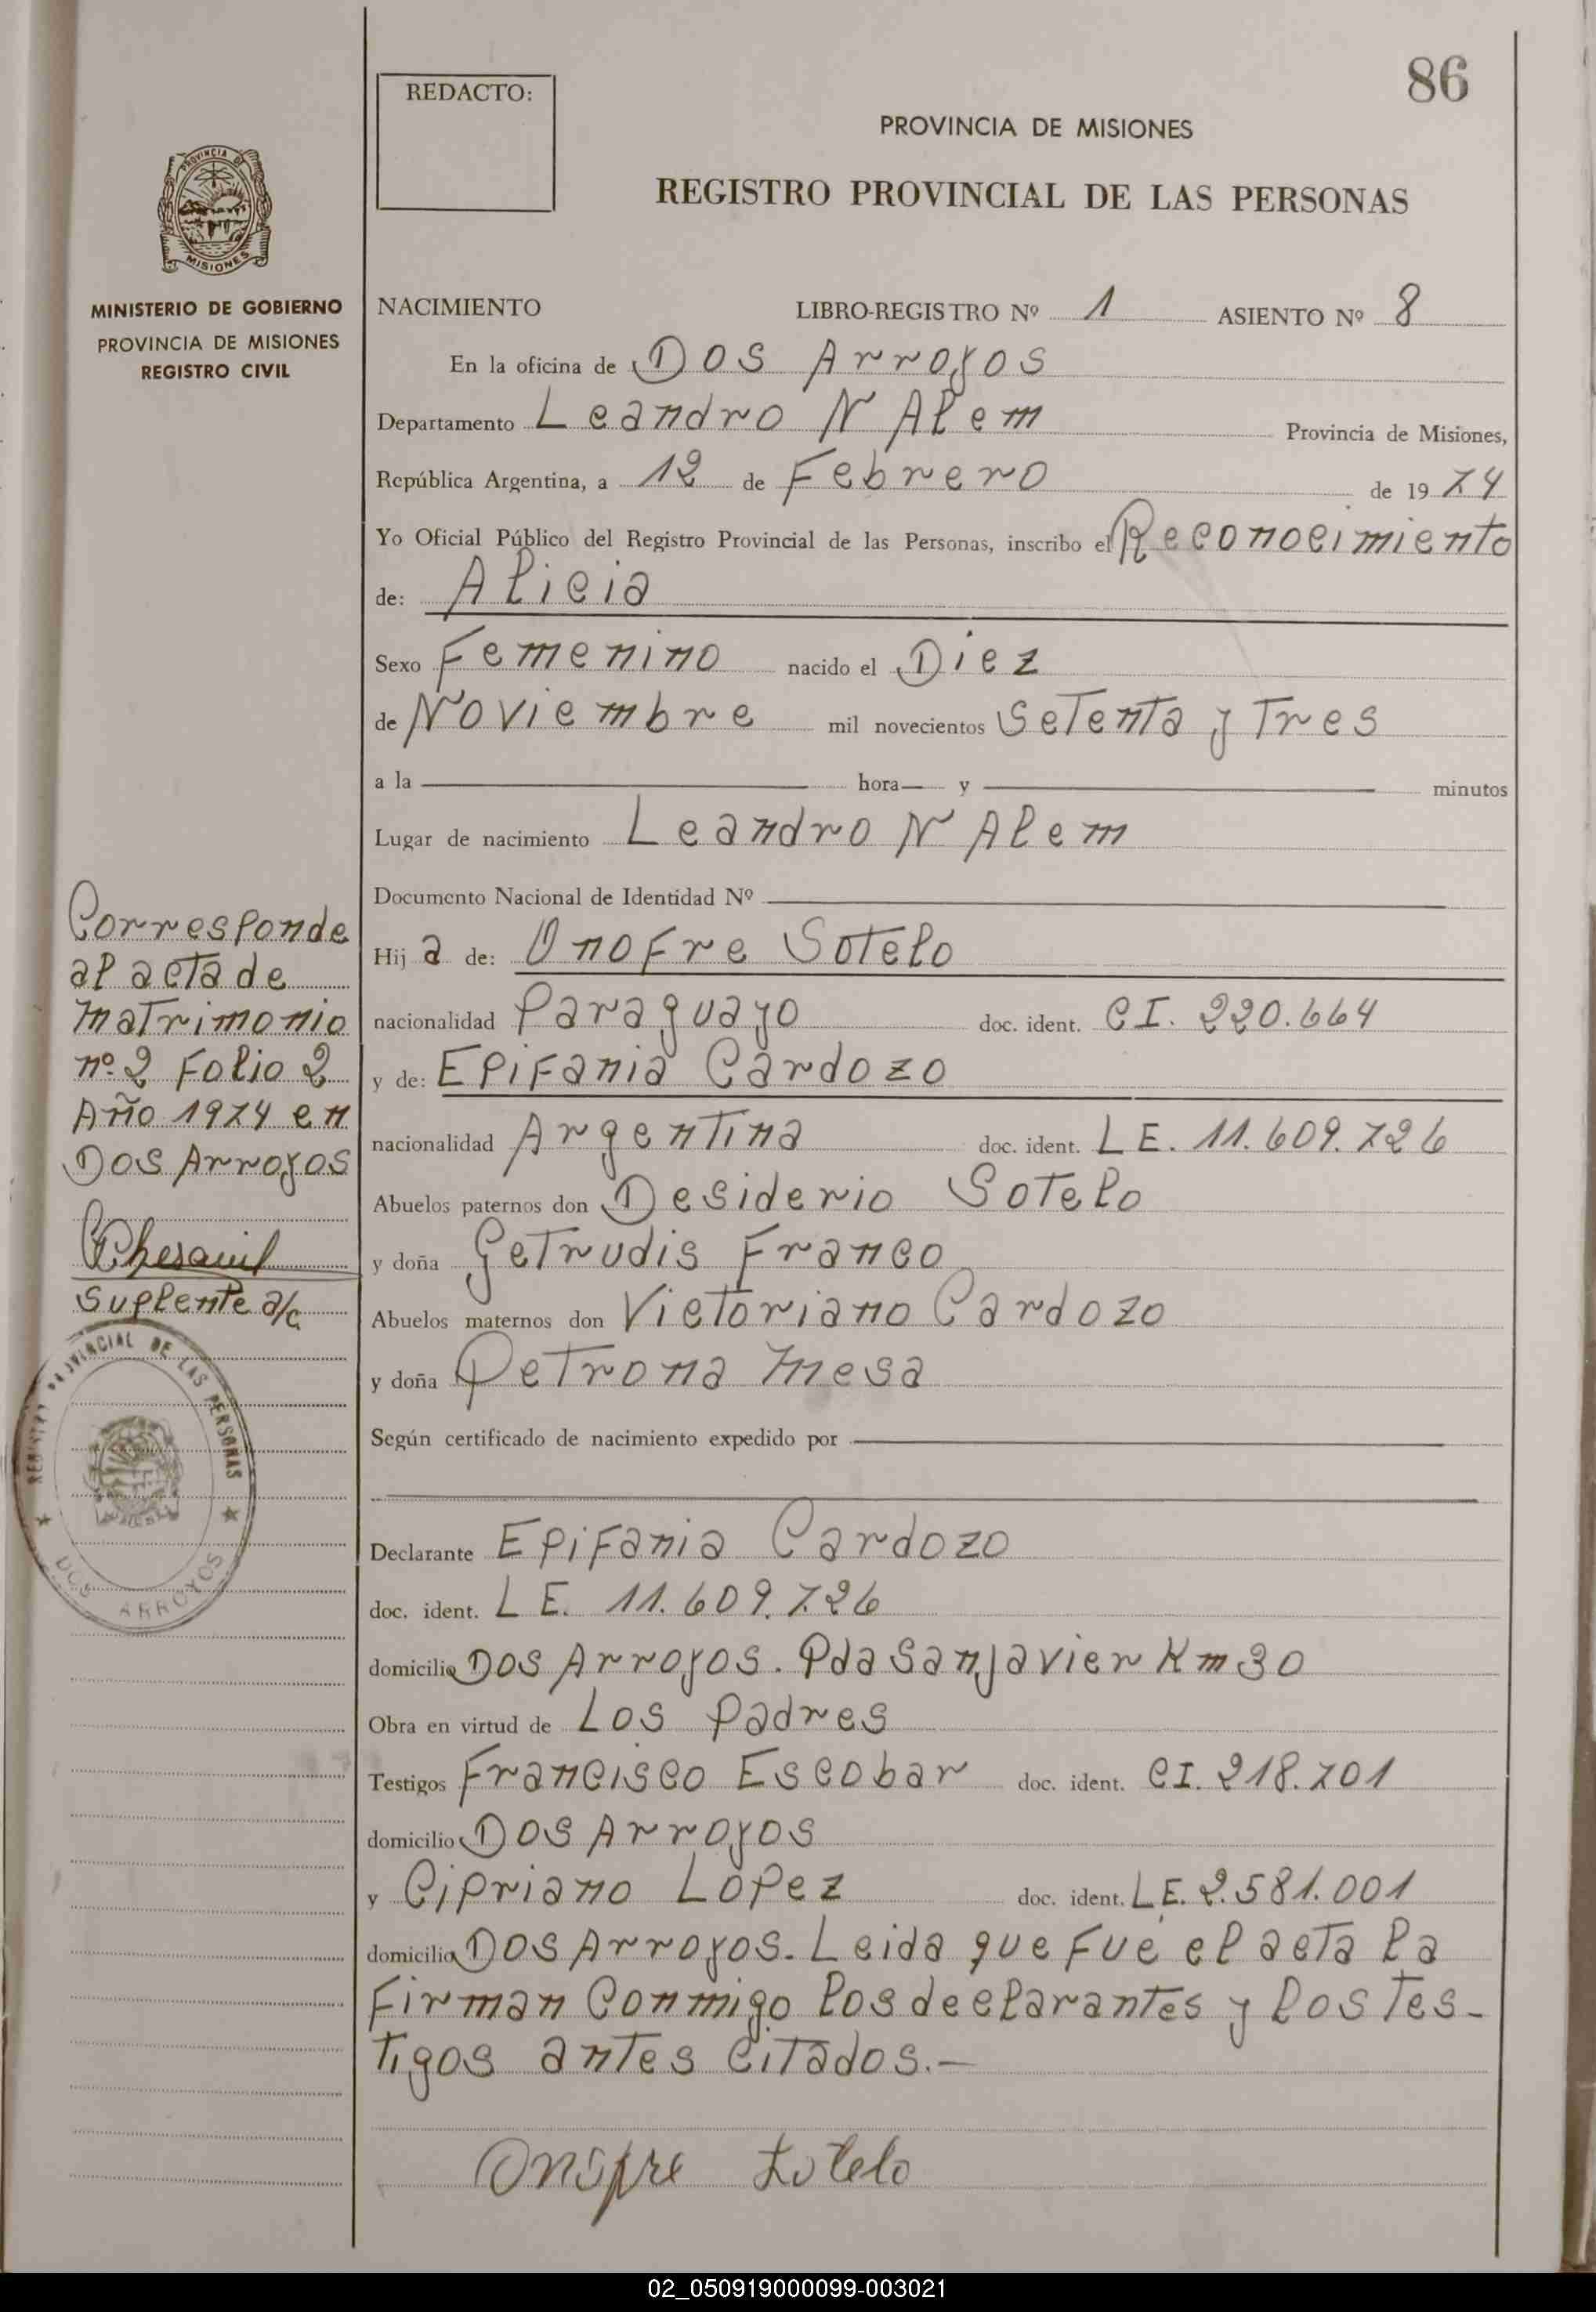 86
REDACTO:
PROVINCIA DE MISIONES
REGISTRO PROVINCIAL DE LAS PERSONAS
PROVINCIA DE
MISIONES
MINISTERIO DE GOBIERNO
PROVINCIA DE MISIONES
REGISTRO CIVIL
NACIMIENTO LIBRO-REGISTRO Nº 1 ASIENTO Nº 8
En la oficina de Dos Arroyos
Departamento Leandro N Alem Provincia de Misiones,
República Argentina, a 12 de Febrero de 1974
Yo Oficial Público del Registro Provincial de las Personas, inscribo el Reconocimiento
de: Alicia
Sexo Femenino nacido el Diez
de Noviembre mil novecientos Setenta y Tres
a la hora y minutos
Lugar de nacimiento Leandro N Alem
Documento Nacional de Identidad Nº
Hija de: Onofre Sotelo
nacionalidad Paraguayo doc. ident. CI. 220.664
y de: Epifania Cardozo
nacionalidad Argentina doc. ident. LE. 11.609.726
Abuelos paternos don Desiderio Sotelo
y doña Getrudis Franco
Abuelos maternos don Victoriano Cardozo
y doña Petrona Mesa
Según certificado de nacimiento expedido por
Declarante Epifania Cardozo
doc. ident. LE. 11.609.726
domicilio Dos Arroyos. Pda San Javier Km 30
Obra en virtud de Los Padres
Testigos Francisco Escobar doc. ident. CI. 218.701
domicilio Dos Arroyos
y Cipriano Lopez doc. ident. LE. 2.581.001
domicilio Dos Arroyos. Leida que fue el acta la
firman conmigo los declarantes y los tes-
tigos antes citados.-
Onofre Sotelo
Corresponde
al acta de
Matrimonio
nº 2 Folio 2
Año 1974 en
Dos Arroyos
Suplente a/c
REGISTRO PROVINCIAL DE LAS PERSONAS
DOS ARROYOS
02_050919000099-003021